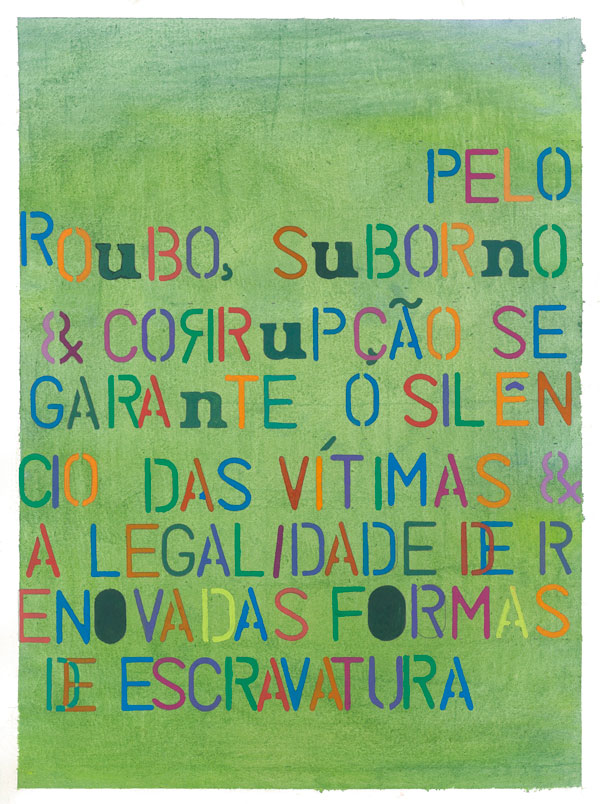 PELO
ROuBO, SuBORnO
& CORRuPÇÃO SE
GARAnTE O SILÊN
CIO DAS VÍTIMAS &
A LEGALIDADE DE R
ENOVADAS FORMAS
DE ESCRAVATURA